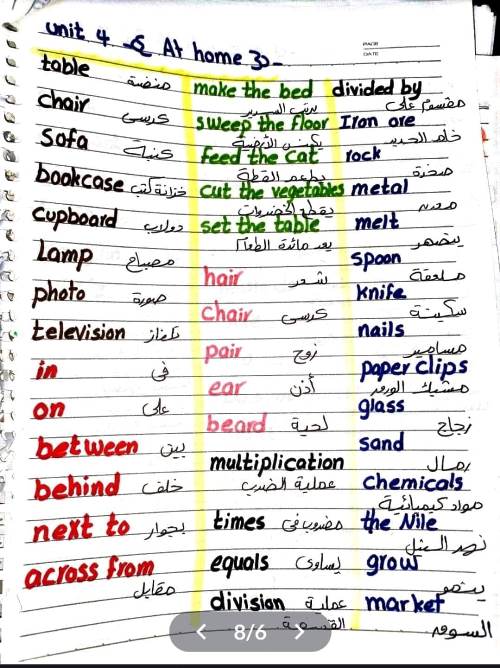 unit 4 At home
PAGE
DATE
table منضدة
chair كرسى
sofa كنبة
bookcase خزانة كتب
cupboard دولاب
Lamp مصباح
photo صورة
television تلفاز
in فى
on على
between بين
behind خلف
next to بجوار
across from
مقابل
make the bed
يرتب السرير
sweep the floor
يكنس الأرضية
feed the cat
يطعم القطة
cut the vegetables
يقطع الخضروات
set the table
يعد مائدة الطعام
hair شعر
chair كرسى
pair زوج
ear أذن
beard لحية
multiplication
عملية الضرب
times مضروب فى
equals يساوى
division عملية
القسمة
divided by
مقسوم على
Iron ore
خام الحديد
rock
صخرة
metal
معدن
melt
ينصهر
spoon
ملعقة
knife
سكينة
nails
مسامير
paper clips
مشبك الورق
glass
زجاج
sand
رمال
chemicals
مواد كيميائية
the Nile
نهر النيل
grow
ينمو
market
السوق
8/6